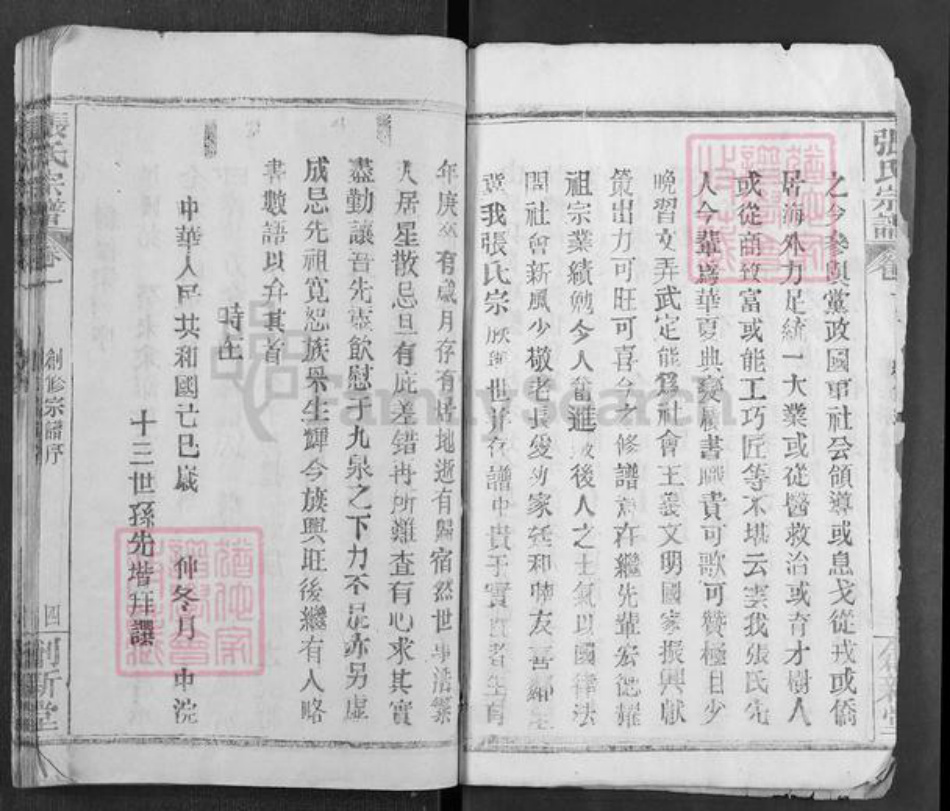 張氏宗譜
之今參與黨政國軍社会領導或息戈從戎或僑
居海外力足統一大業或從醫救治或育才樹人
或從商致富或能工巧匠等不堪云雲我張氏先
人今輩爲華夏典 書職責可歌可贊極目少
晚習文弄武定能爲社會主義文明國家振興獻
策出力可旺可喜今之修譜意在繼先輩宏德耀
祖宗業績勉今人奮進 後人之士氣以國律法
開社會新風少敬老長愛幼家廷和 友喜鄰
我張氏宗 世 存譜中貴于實 者生有
年庚卒有歲月存有 地逝有歸宿然世事浩繁
人居星散忌旦有庇差錯再所難查有心求其實
盡勤讓吾先靈飲慰于九泉之下力不足亦另虛
成忌先祖寬恕族 生輝今族興旺後繼有人略
書數語以弁其首
時在
中華人民共和國己巳歲 仲冬月 中浣
十三世孫先 拜譔
張氏宗譜
卷一
創修宗譜序
四
創新堂
FamilySearch